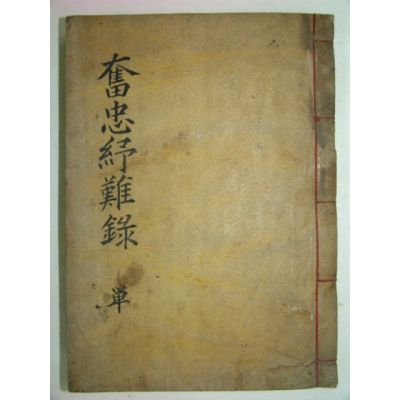 奮忠紓難錄
単